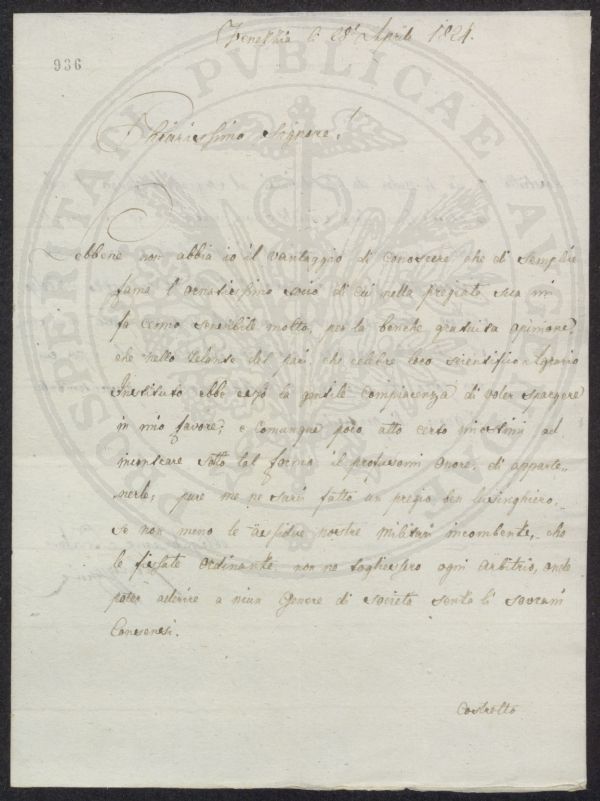 Venezia li 28 Aprile 1824.
936
Chiarissimo Signore!
Sebbene non abbia io il vantaggio di conoscere che di semplice
fama l' ornatissimo socio di cui nella pregiata sua mi
fa cenno sensibile molto, per la benche gratuita opinione,
che nello zelante del pari che celebre loco scientifico Agrario
Instituto ebbe la gentile compiacenza di voler spargere
in mio favore; e comunque poco atto certo mi estimi ad
incontrare sotto tal forma il profusomi onore, di apparte-
nerle; pure me ne sarei fatto un pregio ben lusinghiero,
se non meno le assidue nostre militari incombenze, che
le fissate ordinanze non ne togliessero ogni arbitrio, onde
poter aderire a niun genere di società senza li sovrani
Consensi.
Costretto
PROSPERITATI PVBLICAE AVGENDAE